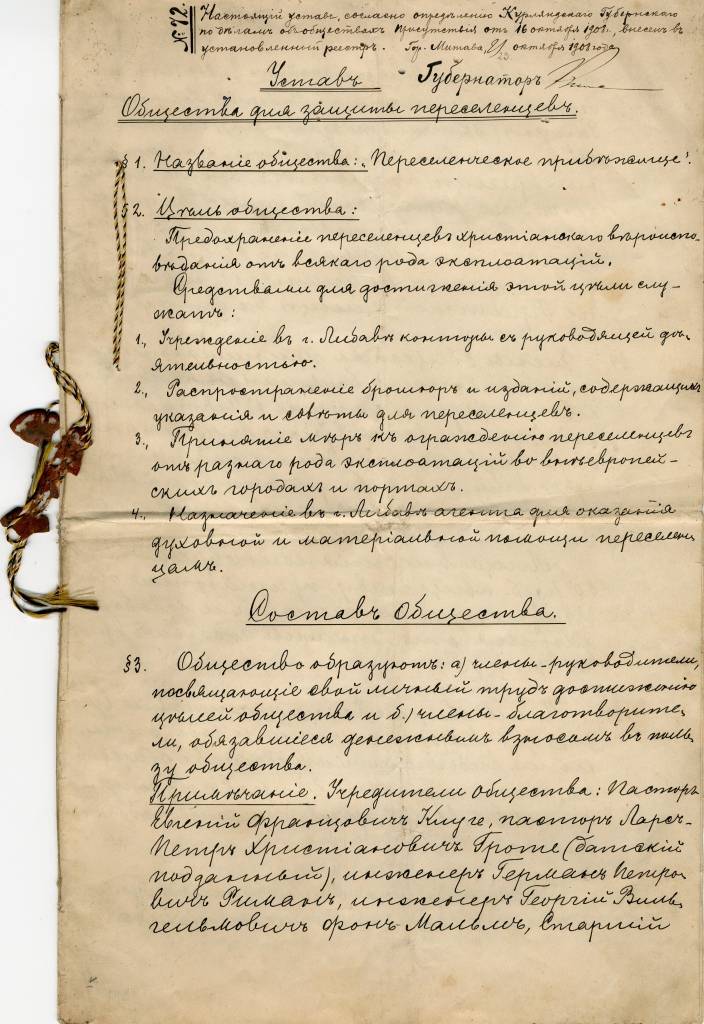 № 72. Настоящій уставъ, согласно опредѣленію Курляндскаго Губернскаго
по дѣламъ объ обществахъ Присутствія отъ 16 октября 1908 г., внесенъ въ
установленный реестръ. Гор. Митава, октября 1908 года
Уставъ Губернаторъ
Общества для защиты переселенцевъ.
§ 1. Названіе общества: „Переселенческое прибѣжище".
§ 2. Цѣль общества:
Предохраненіе переселенцевъ христіанскаго вѣроиспо-
вѣданія отъ всякаго рода эксплоатацій.
Средствами для достиженія этой цѣли слу-
жатъ:
1., Учрежденіе въ г. Либавѣ конторы съ руководящей дѣ-
ятельностью.
2., Распространеніе брошюръ и изданій, содержащихъ
указанія и совѣты для переселенцевъ.
3., Принятіе мѣръ къ огражденію переселенцевъ
отъ разнаго рода эксплоатацій во внѣевропей-
скихъ городахъ и портахъ.
4., Назначеніе въ г. Либавѣ агента для оказанія
духовной и матеріальной помощи переселен-
цамъ.
Составъ Общества.
§ 3. Общество образуютъ: а) члены-руководители,
посвящающіе свой личный трудъ достиженію
цѣлей общества и б.) члены-благотворите-
ли, обязавшіеся денежнымъ взносомъ въ поль-
зу общества.
Примѣчаніе. Учредители общества: Пасторъ
Евгеній Францовичъ Клуге, пасторъ Ларсъ-
Петръ Христіановичъ Гроте (датскій
подданный), инженеръ Германъ Петро-
вичъ Риманъ, инженеръ Георгій Виль-
гельмовичъ фонъ Мальмъ, Старшій